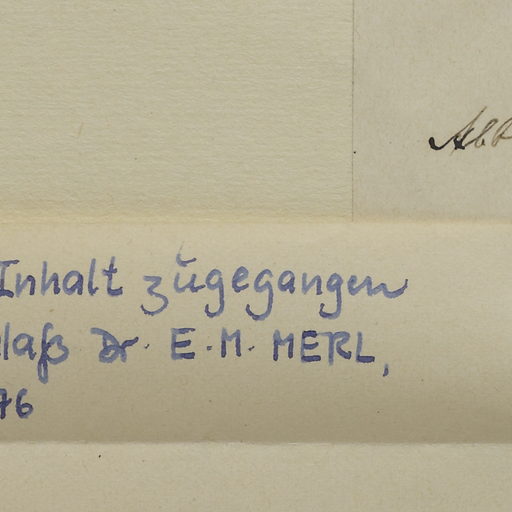 Abt
Inhalt zugegangen
laß Dr. E.M. MERL,
76